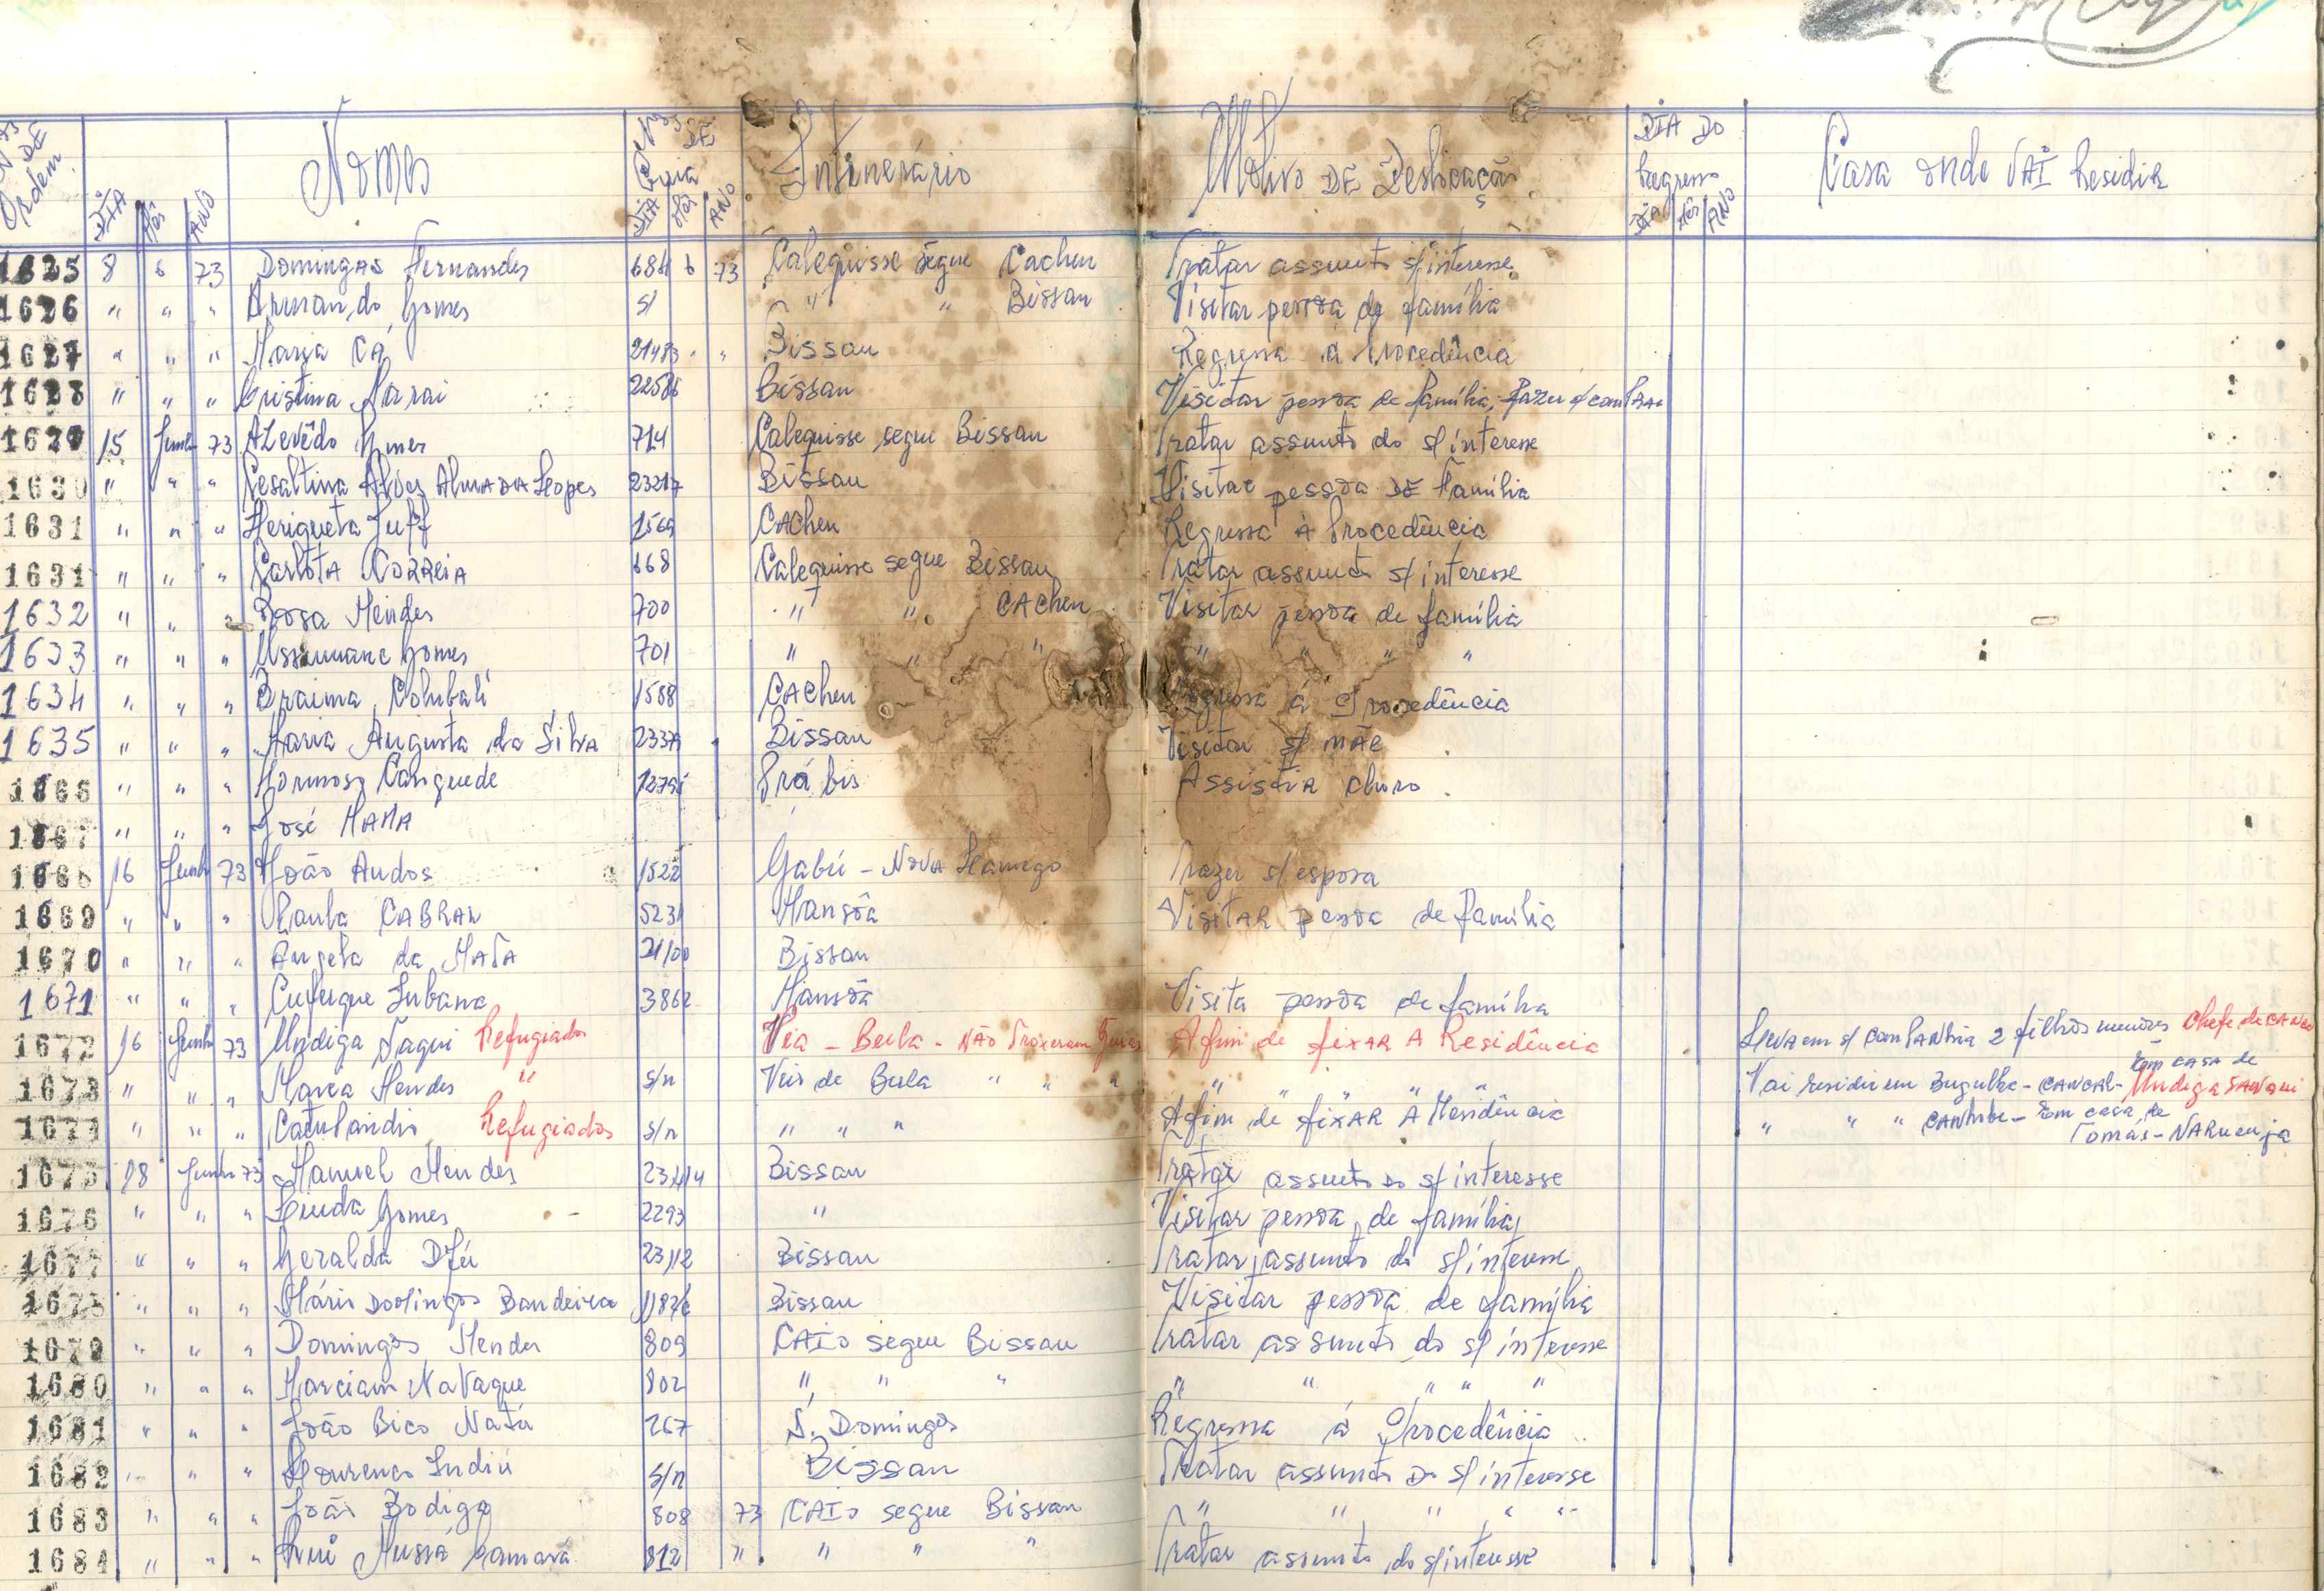 Nºs DE Ordem
DIA Mês ANO
Nomes
Nºs DE Guia
DIA Mês ANO
Intinerário
Motivo DE Deslocação
DIA DO Regresso
DIA Mês ANO
Casa onde VAI Residir
1625 8 6 73 Domingas Fernandes 684 6 73 Calequisse segue Cacheu Tratar assunto s/interesse
1626 " " " Armando Gomes s/ " " Bissau Visitar pessoa de família
1627 " " " Maria CÁ 21483 " " Bissau Regressa à Procedência
1628 " " " Cristina 22586 Bissau Visitar pessoa de família, fazer compras
1629 15 Junho 73 AZevêdo Gomes 714 Calequisse segue Bissau Tratar assunto do s/interesse
1630 " " " Cesaltina Alves AlmADA Lopes 23217 Bissau Visitar pessoa DE Família
1631 " " " Heriqueta 1569 CACheu Regressa À Procedência
1631 " " " CarlotA CORReiA 668 Calequisse segue Bissau Tratar assunto s/interesse
1632 " " " Rosa Mendes 700 " " CACheu Visitar pessoa de família
1633 " " " Ussumane Gomes 701 " " " " " " "
1634 " " " Braima Colubali 1588 CACheu Regressa à Procedência
1635 " " " Maria Augusta da Silva 2337 Bissau Visitar s/ mÃe
1666 " " " Formoso Canguede 12795 Prábis AssistiR Choro
1667 " " " José MAMA
1668 16 Junho 73 João Andos 1522 Gabú - NOVA Lamego Trazer s/esposa
1669 " " " Paula CABRAL 5231 Mansôa VisitAR pessoa de família
1670 " " " Angela da MATA 21/00 Bissau
1671 " " " Cufurque Lubana 3862 Mansôa Visita pessoa de família
1672 16 Junho 73 Undiga Tagui Refugiados Via - Bula - NÃO Troxeram Guias Afim de fixAR A Residência LevA em s/ comPANhia 2 filhos menores Chefe de
1673 " " " Maria Mendes " s/n Veio de Bula " " " " " " " " Vai residir em Bugulha - CANCAL - Em CASA de Undiga
1674 " " " Catulandi Refugiados s/n " " " Afim de fixAR A Residência " " " - Em casa de Tomás -
1675 18 Junho 73 Manuel Mendes 23414 Bissau Tratar assunto DO s/interesse
1676 " " " Linda Gomes 2293 " Visitar pessoa de família
1677 " " " Geralda DJú 23112 Bissau Tratar assunto do s/interesse
1678 " " " Mário Domingos Bandeira 11876 Bissau Visitar pessoa de família
1679 " " " Domingos Mendes 809 CAIÓ segue Bissau Tratar assunto do s/interesse
1680 " " " Marciam NaVaque 802 " " " " " " " "
1681 " " " João Bico Natú 267 S. Domingos Regressa à Procedência
1682 " " " Lourenço Indiú s/n Bissau Tratar assunto Do s/interesse
1683 " " " João Bodigo 808 73 CAIÓ segue Bissau " " " " "
1684 " " " Mussá Camara 812 " " " " Tratar assunto do s/interesse